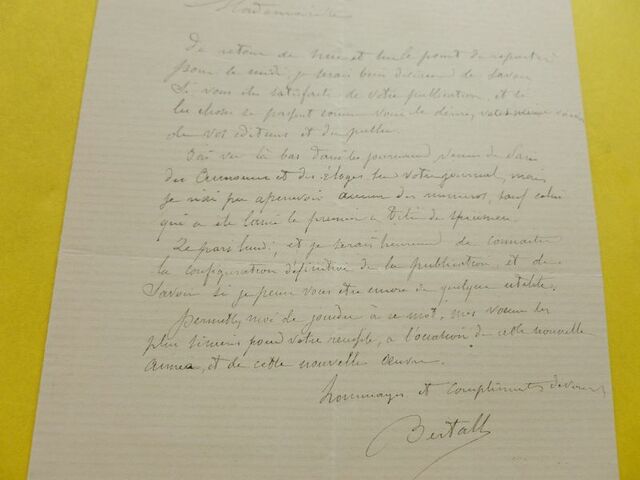 Mademoiselle
De retour de Nice et sur le point de repartir
pour le midi, je serais bien désireux de savoir
si vous êtes satisfaite de votre publication, et si
les choses se passent comme vous le désirez, vis à vis
de vos éditeurs et du public.
J'ai vu là bas dans les journaux venus de Paris
des annonces et des éloges sur votre journal, mais
je n'ai pu apercevoir aucun des numéros, sauf celui
qui a été lancé le premier à titre de specimen.
Je pars lundi, et je serais heureux de connaitre
la configuration définitive de la publication, et de
savoir si je peux vous être encore de quelque utilité.
Permettez moi de joindre à ce mot, mes voeux les
plus sincères pour votre réussite, à l'occasion de cette nouvelle
année, et de cette nouvelle oeuvre.
hommages et compliments dévoués
Bertall